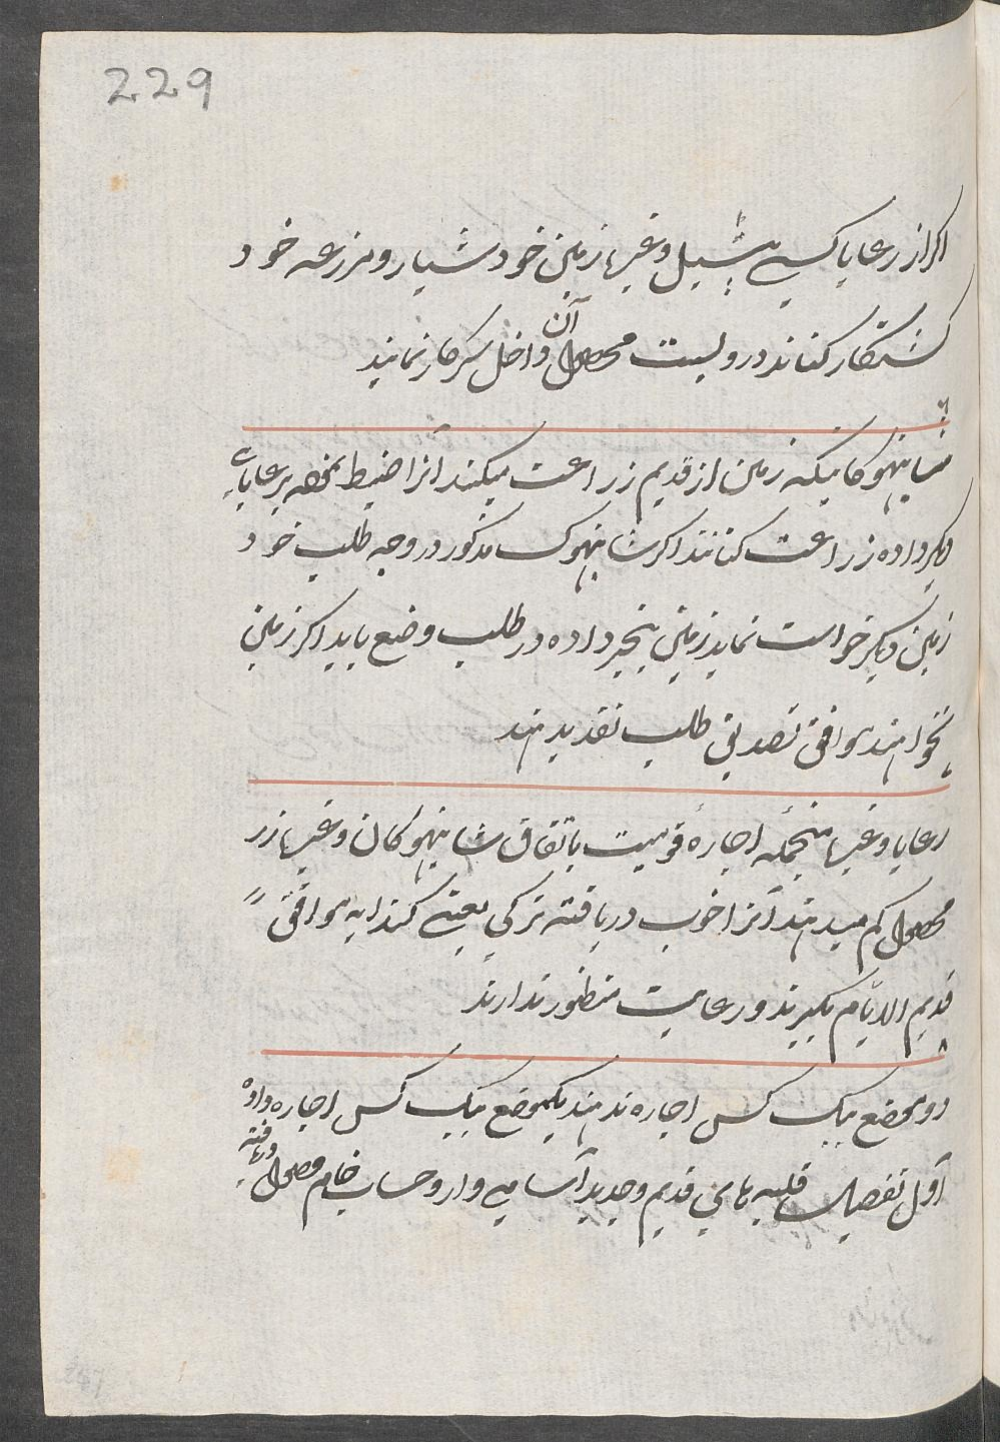 229
اکر از رعایا کسے پٹیل وغیرہ زمین خود شیار و مزرعہ خود
کشتکار کنانند دروبست محصول آن داخل سرکار نمایند
۶
شانبہوکانیکہ زمین از قدیم زراعت میکنند آنرا ضبط نموده برعایای
دیکر داده زراعت کنانند اکر شانبہوک مذکور در وجہ طلب خود
زمین دیکر خواست نماید زمین بنجر داده در طلب وضع باید اکر زمین
نخواهند موافق تصدیق طلب نقد بدہند
۷
رعایا وغیرہ منجملہ اجارۂ قومیت باتفاق شانبہوکان وغیرہ زر
محصول کم میدہند آنرا خوب دریافتہ ترکی یعنے کندایہ موافق
قدیم الایّام بکیرند و رعایت منظور ندارند
۸
دو موضع بیک کس اجاره ندہند یکموضع بیک کس اجاره داده
اوّل تفصیل قلبہ ہای قدیم وجدید آسامیوار و حساب خام وصول دریافتہ